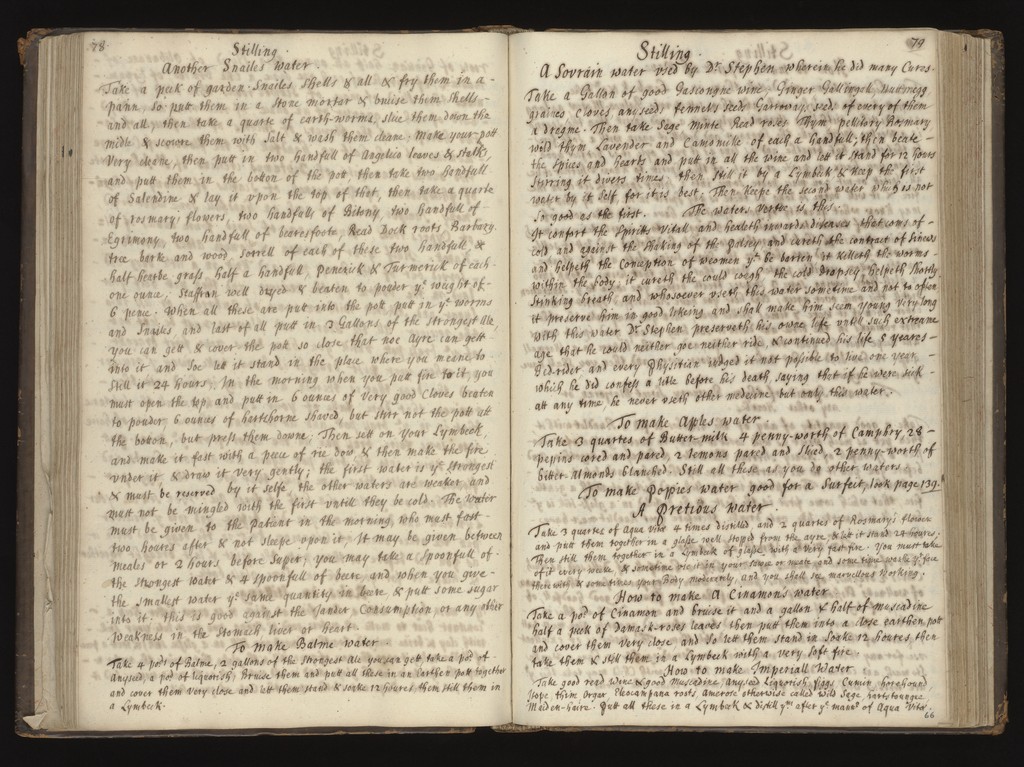 78
Stilling
Another Snailes water
Take a peck of garden Snailes Shells & all & fry them in a
pann, So putt them in a Stone morter & bruise them Shells
and all, then take a quarte of earth-worms, slice them down the
midle & scowre them with Salt & wash them cleane, Make your pott
Very cleane, then putt in two handfull of Angelico leaves & stalks
and putt them in the bottom of the pott then take two handfull
of Salendine & lay it upon the top of that, then take a quarte
of rosmary flowers, two handfull of Bitony, two handfull of
Egrimony, two handfull of bearesfoote Read Dock roots, Barbary
tree barke and wood sorrell of each of these two handfull, &
half hearbe grass, half a handfull, & Turmerick of each
one ounce, Saffron well dryed & beaten to powder ye weight of
6 pence. When all these are putt into the pott putt in ye worms
and Snailes and last of all putt in 3 Gallons of the strongest Ale,
you can gett & cover the pott so close that noe Ayre can gett
into it and Soe let it stand in the place where you meane to
Still it 24 hours, In the morning when you putt fire to it, you
must open the top and putt in 6 ounces of Very good Cloves beaten
to pouder, 6 ounces of hartshorne shaved, but stirr not the pott att
the bottom, but press them downe, Then sett on your Lymbeck
and make it fast with a peece of rie dow & then make the fire
under it & draw it very gently; the first water is ye strongest
& must be reserved by it selfe the other waters are weaker and
must not be mingled with the first untill they be cold. The water
must be given to the Patient in the morning, who must fast
two houres after & not sleepe upon it, It may be given between
meales or 2 hours before Super; you may take a Spoonfull of
the strongest water & 4 spoonfull of beare and when you give
the smallest water ye same quantity in beere & putt some sugar
into it: this is good against the Jander Consumption or any other
Weakness in the stomach liver or heart.
To make Balme water
Take 4 pod of Balme, 2 gallons of the Strongest Ale you can gett, take a pod of
Anyseed, a pod of liquorish Bruise them and putt all these in an Earthen pott together
and cover them Very close and lett them stand & soake 12 houres then still them in
a Lymbeck.
79
Stilling
A Sovrain water used by Dr Stephen wherein he did many Cures
Take a Gallon of good Gascongne wine, Ginger Gallingel, Nutmegg
graines, Cloves anyseed, fennels seeds Carroway seeds of every of them
a dragme. Then take Sage Minte Read roses Thym pellitory Rosmary
wild thym Lavender and Camomille of each a handfull, then beate
the spices and hearbs and putt in all the wine and lett it Stand for 12 hours
Stirring it divers times then Still it by a Lymbeck & Keep the first
water by it Self for it is best, Then Keepe the second water which is not
So good as the first. The waters Vertue is this
It confort the Spirits Vitall and healeth inwards diseases that coms of
cold and against the Shaking of the Palsey and cureth the contract of Sinews
and helpeth the Conception of weomen yt be barren it Killeth the worms
within the body, it cureth the could cough the cold Dropsey, helpeth Shortly
stinking breath and whosoever useth this water sometime and not to often
it preserve him in good likeing and shall make him seem Young Very long
with this water Dr Stephen preserveth his owne life untill such extreame
age that he could neither goe neither ride, & continued his life 8 yeares
Bed-rider and every Physitian judged it not possible to live one year,
which he did confess a little before his death saying that if he were sick
att any time, he never useth other medecine but only this water.
To make Aples water
Take 3 quartes of Butter-milk 4 penny-worth of Camphry 28
pepins cored and pared, 2 lemons pared and sliced 2 penny-worth of
bitter Almonds blanched. Still all these as you do other waters
To make Popies water good for a Surfeit, look page 139.
A Pretious water
Take 3 quartes of Aqua Vitae 4 times distilled and 2 quartes of Rosmarys flowers
and putt them together in a glasse well stoped from the ayre, & lett it stand 24 houres;
Then still them together in a Lymbeck of glasse, with a Very fast fire. You must take
of it every weeke, & sometime use it in your sawce or meate and some time wash ye face
therewith & some times your Body moderately, and you shall see marvellous Working.
How to make A Cinamons water
Take a pod of Cinamon and bruise it and a gallon & half of muscadine
half a peck of damask-roses leaves then putt them into a close earthen pott
and cover them Very close and so lett them stand in Soake 12 houres, then
take them & still them in a Lymbeck with a very soft fire.
How to make Imperiall Water
Take good read wine & good Muscadine, Anyseed Liquorish, figgs Cumin, horehound
Isope thim Orgar Elecampana roots, Amerose otherwise called wild Sage hartstoungue
Meiden-haire. Putt all these in a Lymbeck & distill ym after ye mannr of Aqua Vitae
66